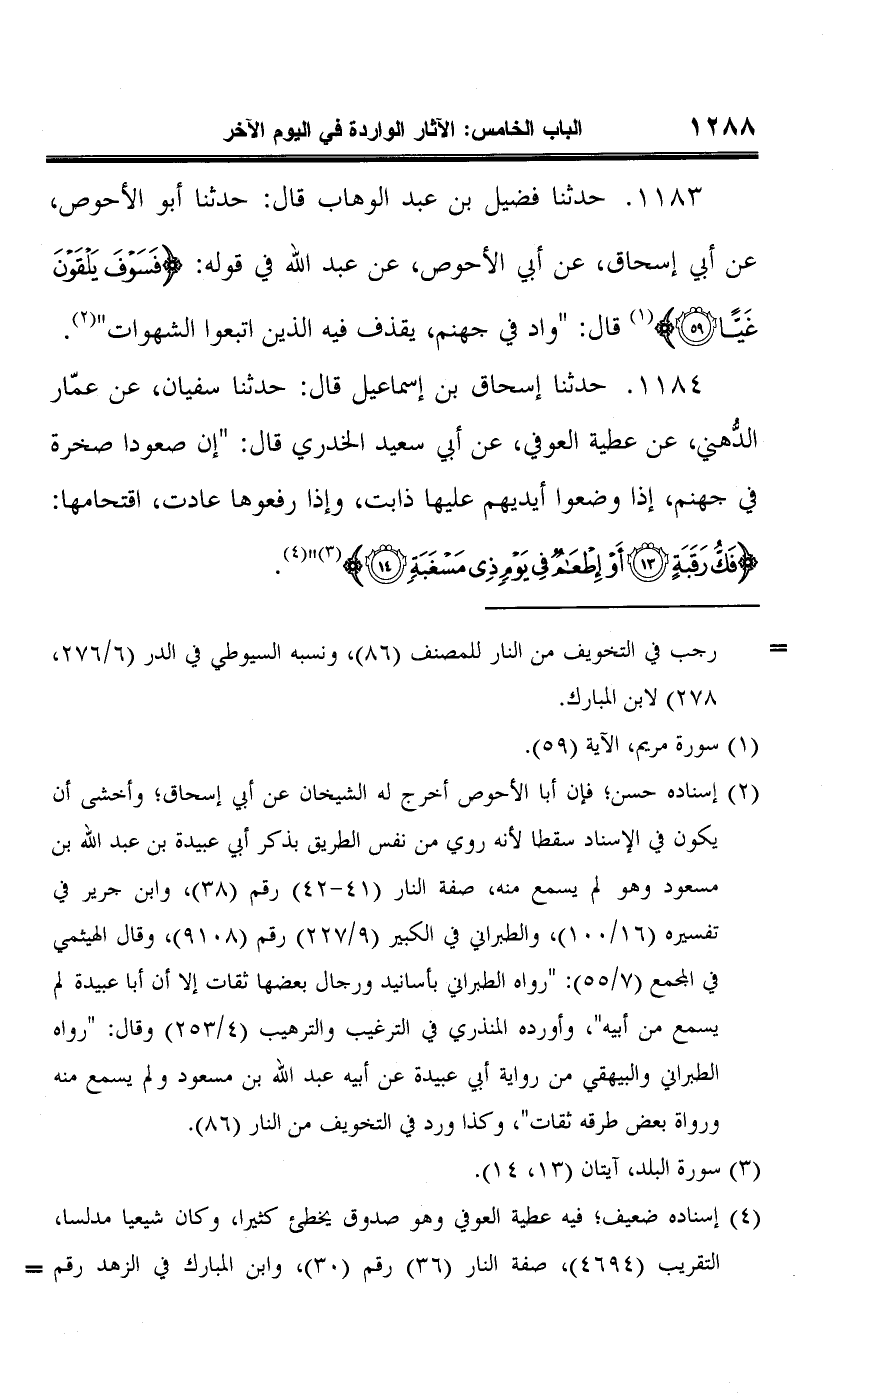 ١٢٨٨ الباب الخامس: الآثار الواردة في اليوم الآخر
١١٨٣. حدثنا فضيل بن عبد الوهاب قال: حدثنا أبو الأحوص،
عن أبي إسحاق، عن أبي الأحوص، عن عبد الله في قوله: ﴿فَسَوْفَ يَلْقَوْنَ
غَيًّا ٥٩﴾(١) قال: "واد في جهنم، يقذف فيه الذين اتبعوا الشهوات"(٢).
١١٨٤. حدثنا إسحاق بن إسماعيل قال: حدثنا سفيان، عن عمّار
الدُّهني، عن عطية العوفي، عن أبي سعيد الخدري قال: "إن صعودا صخرة
في جهنم، إذا وضعوا أيديهم عليها ذابت، وإذا رفعوها عادت، اقتحامها:
﴿فَكُّ رَقَبَةٍ ١٣ أَوْ إِطْعَٰمٌ فِى يَوْمٍ ذِى مَسْغَبَةٍ ١٤﴾(٣)"(٤).
= رجب في التخويف من النار للمصنف (٨٦)، ونسبه السيوطي في الدر (٢٧٦/٦،
٢٧٨) لابن المبارك.
(١) سورة مريم، الآية (٥٩).
(٢) إسناده حسن؛ فإن أبا الأحوص أخرج له الشيخان عن أبي إسحاق؛ وأخشى أن
يكون في الإسناد سقطا لأنه روي من نفس الطريق بذكر أبي عبيدة بن عبد الله بن
مسعود وهو لم يسمع منه، صفة النار (٤١-٤٢) رقم (٣٨)، وابن جرير في
تفسيره (١٠٠/١٦)، والطبراني في الكبير (٢٢٧/٩) رقم (٩١٠٨)، وقال الهيثمي
في المجمع (٥٥/٧): "رواه الطبراني بأسانيد ورجال بعضها ثقات إلا أن أبا عبيدة لم
يسمع من أبيه"، وأورده المنذري في الترغيب والترهيب (٢٥٣/٤) وقال: "رواه
الطبراني والبيهقي من رواية أبي عبيدة عن أبيه عبد الله بن مسعود ولم يسمع منه
ورواة بعض طرقه ثقات"، وكذا ورد في التخويف من النار (٨٦).
(٣) سورة البلد، آيتان (١٣، ١٤).
(٤) إسناده ضعيف؛ فيه عطية العوفي وهو صدوق يخطئ كثيرا، وكان شيعيا مدلسا،
التقريب (٤٦٩٤)، صفة النار (٣٦) رقم (٣٠)، وابن المبارك في الزهد رقم =